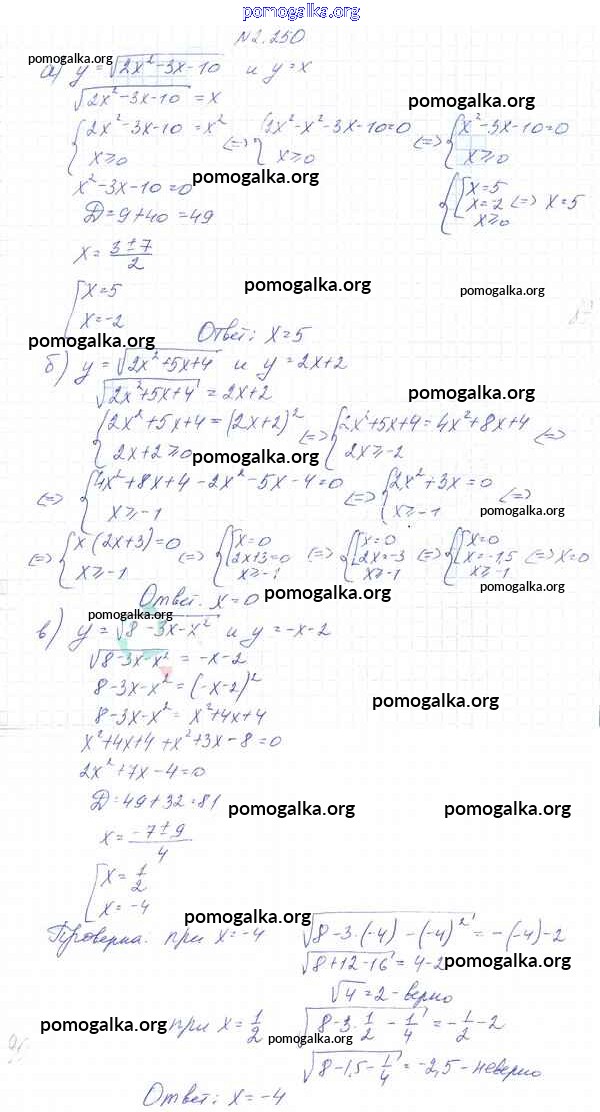 pomogalka.org
№2.250
pomogalka.org
а) y = √(2x² - 3x - 10) и y = x
√(2x² - 3x - 10) = x
pomogalka.org
{ 2x² - 3x - 10 = x² ; x ⩾ 0 <=> { 2x² - x² - 3x - 10 = 0 ; x ⩾ 0 <=> { x² - 3x - 10 = 0 ; x ⩾ 0
pomogalka.org
x² - 3x - 10 = 0
{ [ x = 5 ; x = -2 ; x ⩾ 0 <=> x = 5
Д = 9 + 40 = 49
x = (3 ± 7)/2
pomogalka.org
pomogalka.org
[ x = 5 ; x = -2
Ответ: x = 5
pomogalka.org
б) y = √(2x² + 5x + 4) и y = 2x + 2
√(2x² + 5x + 4) = 2x + 2
pomogalka.org
{ 2x² + 5x + 4 = (2x + 2)² ; 2x + 2 ⩾ 0 <=> { 2x² + 5x + 4 = 4x² + 8x + 4 ; 2x ⩾ -2 <=>
pomogalka.org
<=> { 4x² + 8x + 4 - 2x² - 5x - 4 = 0 ; x ⩾ -1 <=> { 2x² + 3x = 0 ; x ⩾ -1 <=>
pomogalka.org
<=> { x(2x + 3) = 0 ; x ⩾ -1 <=> { [ x = 0 ; 2x + 3 = 0 ; x ⩾ -1 <=> { [ x = 0 ; 2x = -3 ; x ⩾ -1 <=> { [ x = 0 ; x = -1,5 ; x ⩾ -1 <=> x = 0
pomogalka.org
pomogalka.org
Ответ. x = 0
pomogalka.org
в) y = √(8 - 3x - x²) и y = -x - 2
√(8 - 3x - x²) = -x - 2
8 - 3x - x² = (-x - 2)²
pomogalka.org
8 - 3x - x² = x² + 4x + 4
x² + 4x + 4 + x² + 3x - 8 = 0
2x² + 7x - 4 = 0
Д = 49 + 32 = 81
pomogalka.org
pomogalka.org
x = (-7 ± 9)/4
[ x = 1/2 ; x = -4
pomogalka.org
Проверка: при x = -4 √(8 - 3·(-4) - (-4)²) = -(-4) - 2
√(8 + 12 - 16) = 4 - 2
pomogalka.org
√4 = 2 - верно
pomogalka.org
при x = 1/2 √(8 - 3·1/2 - 1/4) = -1/2 - 2
pomogalka.org
√(8 - 1,5 - 1/4) = -2,5 - неверно
Ответ: x = -4